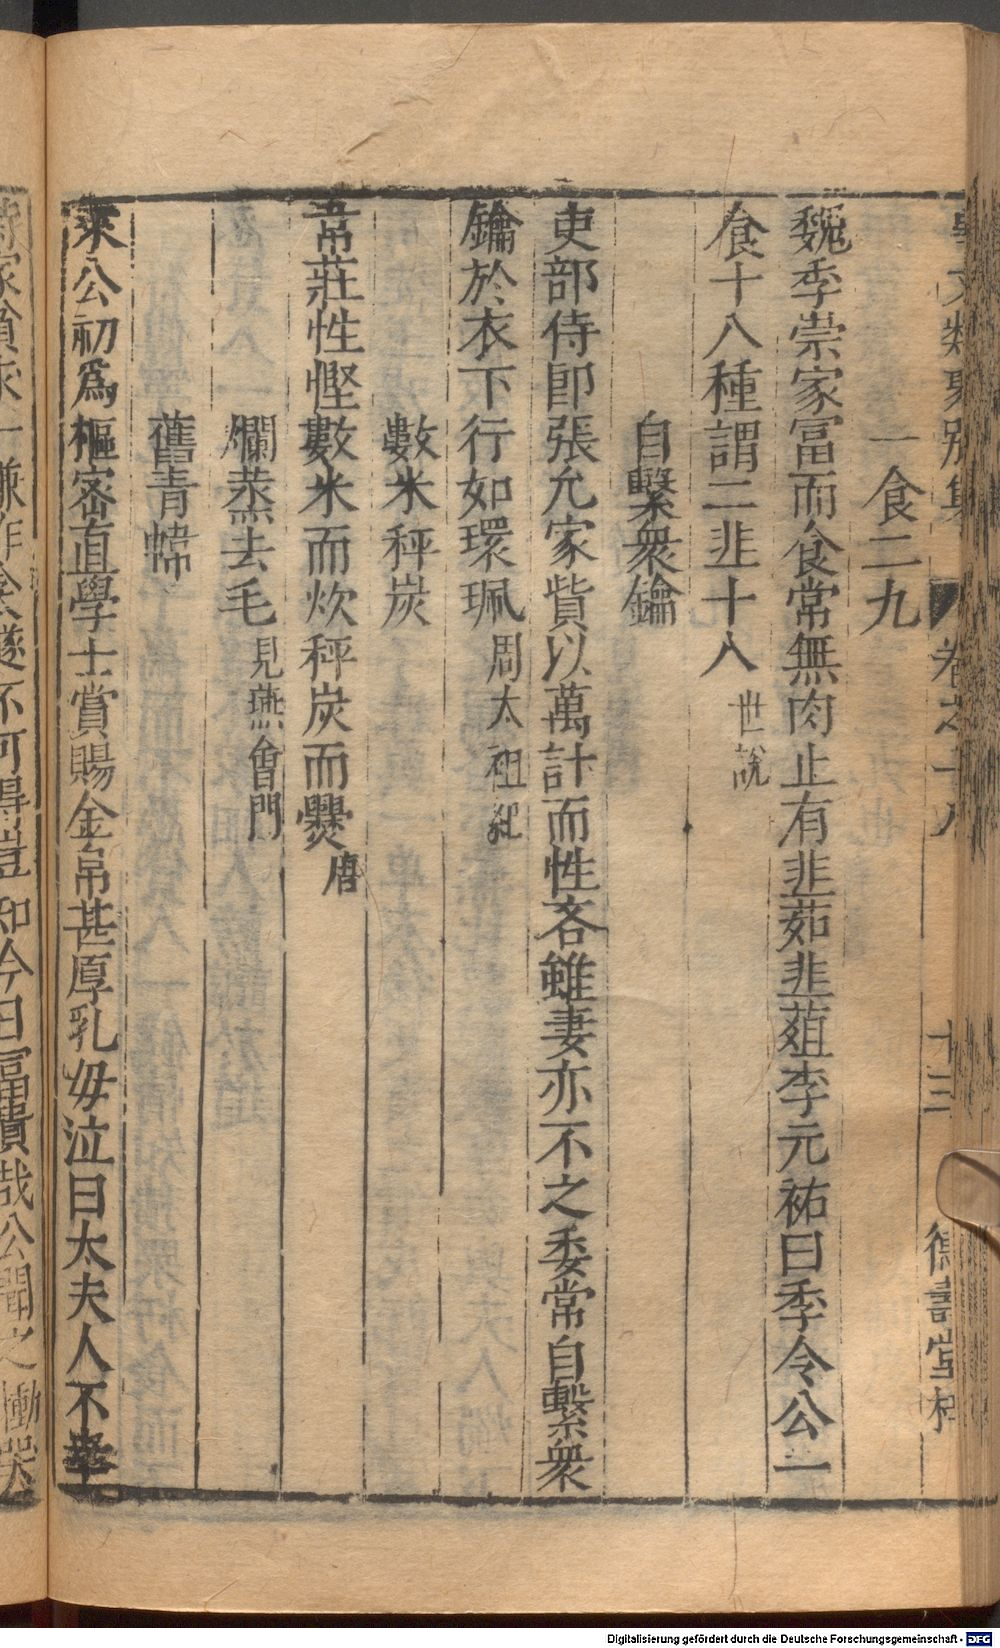 事文類聚別集 卷之十八 十三 德壽堂梓
一食二九
魏李崇家冨而食常無肉止有韭茹韭葅李元祐曰李令公一
食十八種謂二韭十八 世說
自繫衆鑰
吏部侍郎張允家貲以萬計而性吝雖妻亦不之委常自繫衆
鑰於衣下行如環珮 周太祖紀
數米秤炭
韋莊性慳數米而炊秤炭而爨 唐
爛蒸去毛 見燕會門
舊青幃
萊公初爲樞密直學士賞賜金帛甚厚乳母泣曰太夫人不幸
時家貧求一縑作衾襚不可得豈知今日冨貴哉公聞之慟哭
Digitalisierung gefördert durch die Deutsche Forschungsgemeinschaft - DFG